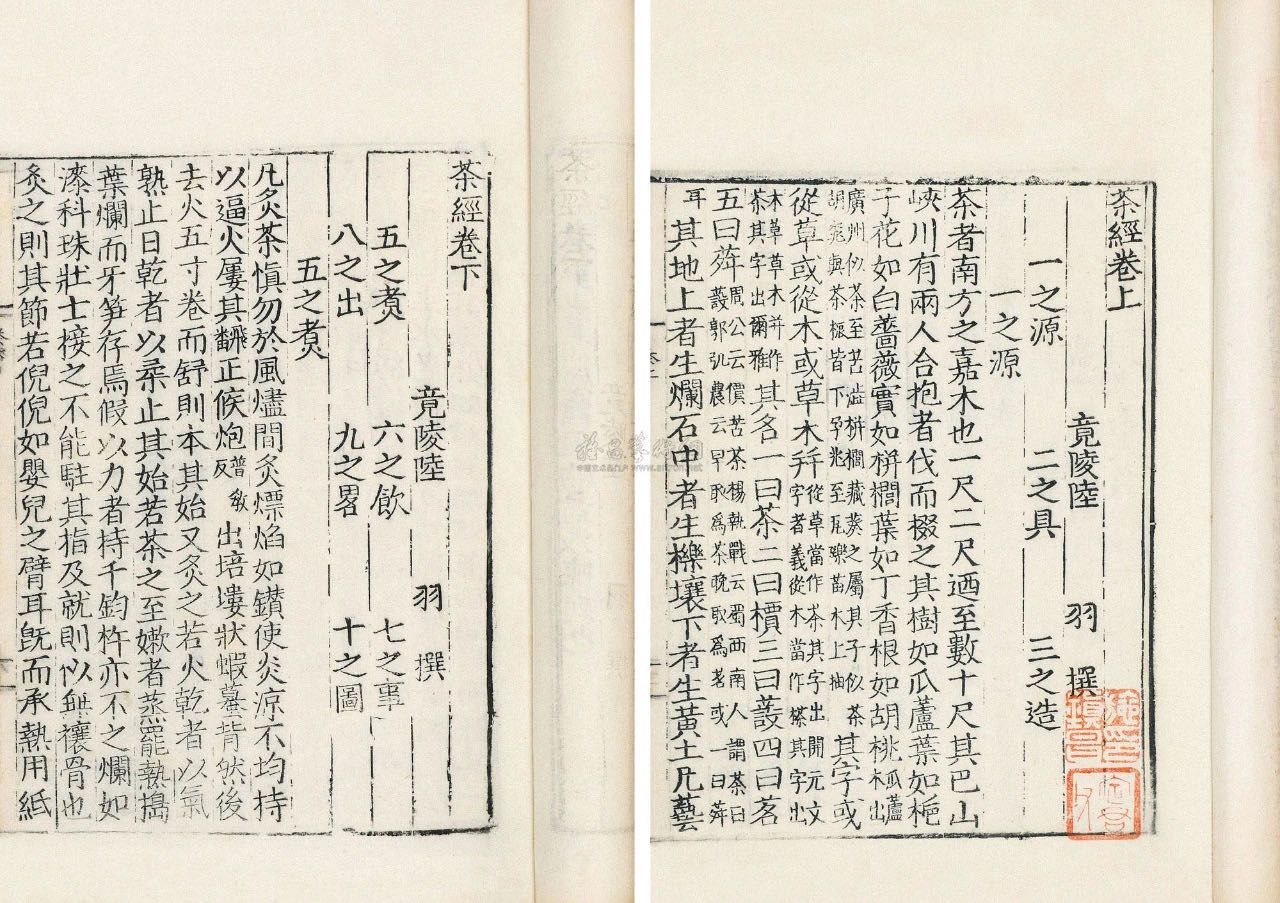 茶經卷上
竟陵陸 羽 撰
一之源 二之具 三之造
一之源
茶者南方之嘉木也一尺二尺迺至數十尺其巴山
峽川有兩人合抱者伐而掇之其樹如瓜蘆葉如梔
子花如白薔薇實如栟櫚葉如丁香根如胡桃瓜蘆木出
廣州似茶至苦澁栟櫚蒲葵之屬其子似茶胡桃與茶根皆下孕兆至瓦礫苗木上抽其字或
從草或從木或草木并從草當作茶其字出開元文字者義從木當作搽其字出
本草草木并作茶其字出爾雅其名一曰茶二曰檟三曰蔎四曰茗
五曰荈周公云價苦茶楊執戟云蜀西南人謂茶曰蔎郭弘農云早取爲茶晚取爲茗或一曰荈
耳其地上者生爛石中者生櫟壤下者生黃土凡藝
茶經卷下
竟陵陸 羽 撰
五之煑 六之飲 七之事
八之出 九之畧 十之圖
五之煑
凡炙茶慎勿於風燼間炙熛焰如鑚使炎凉不均持
以逼火屢其飜正候炮普敎反出培塿狀蝦蟇背然後
去火五寸卷而舒則本其始又炙之若火乾者以氣
熟止日乾者以柔止其始若茶之至嫰者蒸罷熱搗
葉爛而牙笋存焉假以力者持千鈞杵亦不之爛如
漆科珠壯士接之不能駐其指及就則似無禳骨也
炙之則其節若倪倪如嬰兒之臂耳旣而承熱用紙